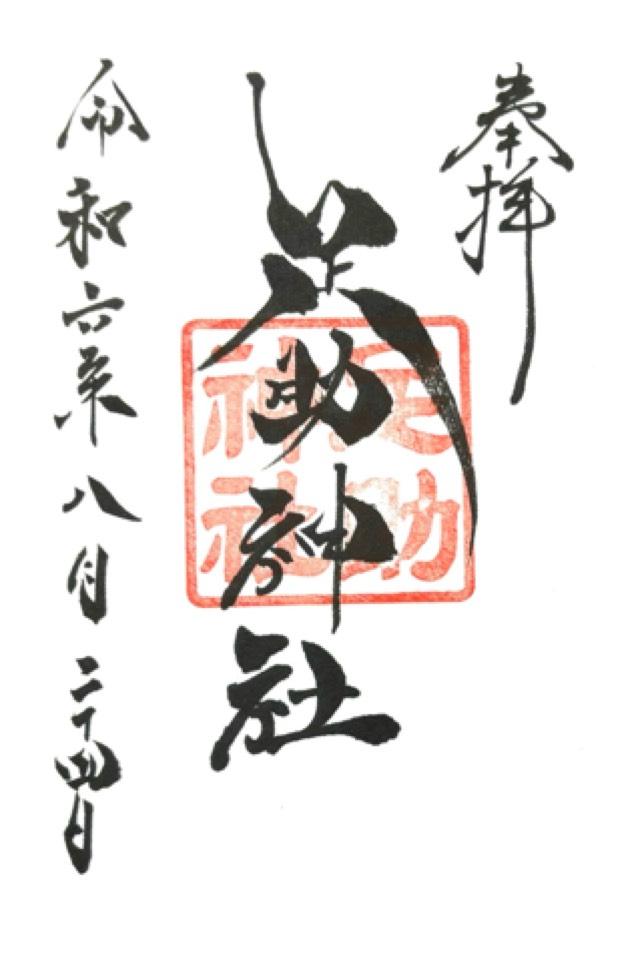 奉拝
足助神社
足助
神社
令和六年八月二十四日